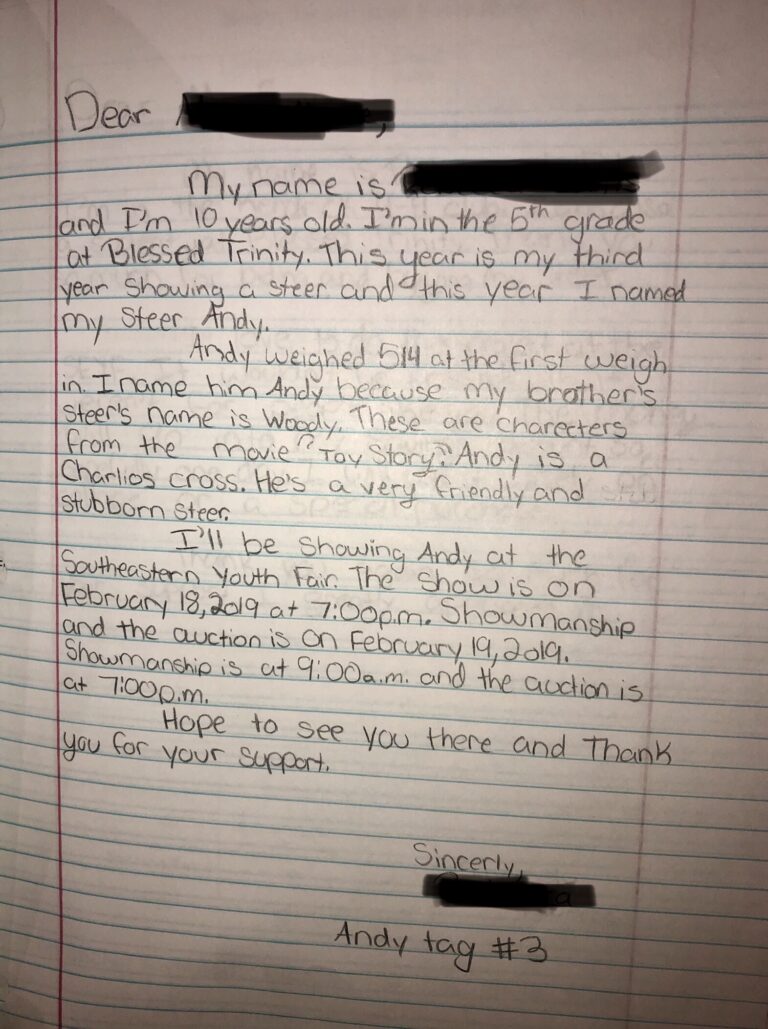 Dear
My name is
and I'm 10 years old. I'm in the 5th grade
at Blessed Trinity. This year is my third
year showing a steer and this year I named
my Steer Andy.
Andy weighed 514 at the first weigh
in. I name him Andy because my brother's
Steer's name is Woody. These are charecters
from the movie "Toy Story". Andy is a
Charlios cross. He's a very friendly and
stubborn steer.
I'll be showing Andy at the
Southeastern Youth Fair. The show is on
February 18, 2019 at 7:00p.m. Showmanship
and the auction is on February 19, 2019.
Showmanship is at 9:00a.m. and the auction is
at 7:00p.m.
Hope to see you there and Thank
you for your support.
Sincerly,
Andy tag #3